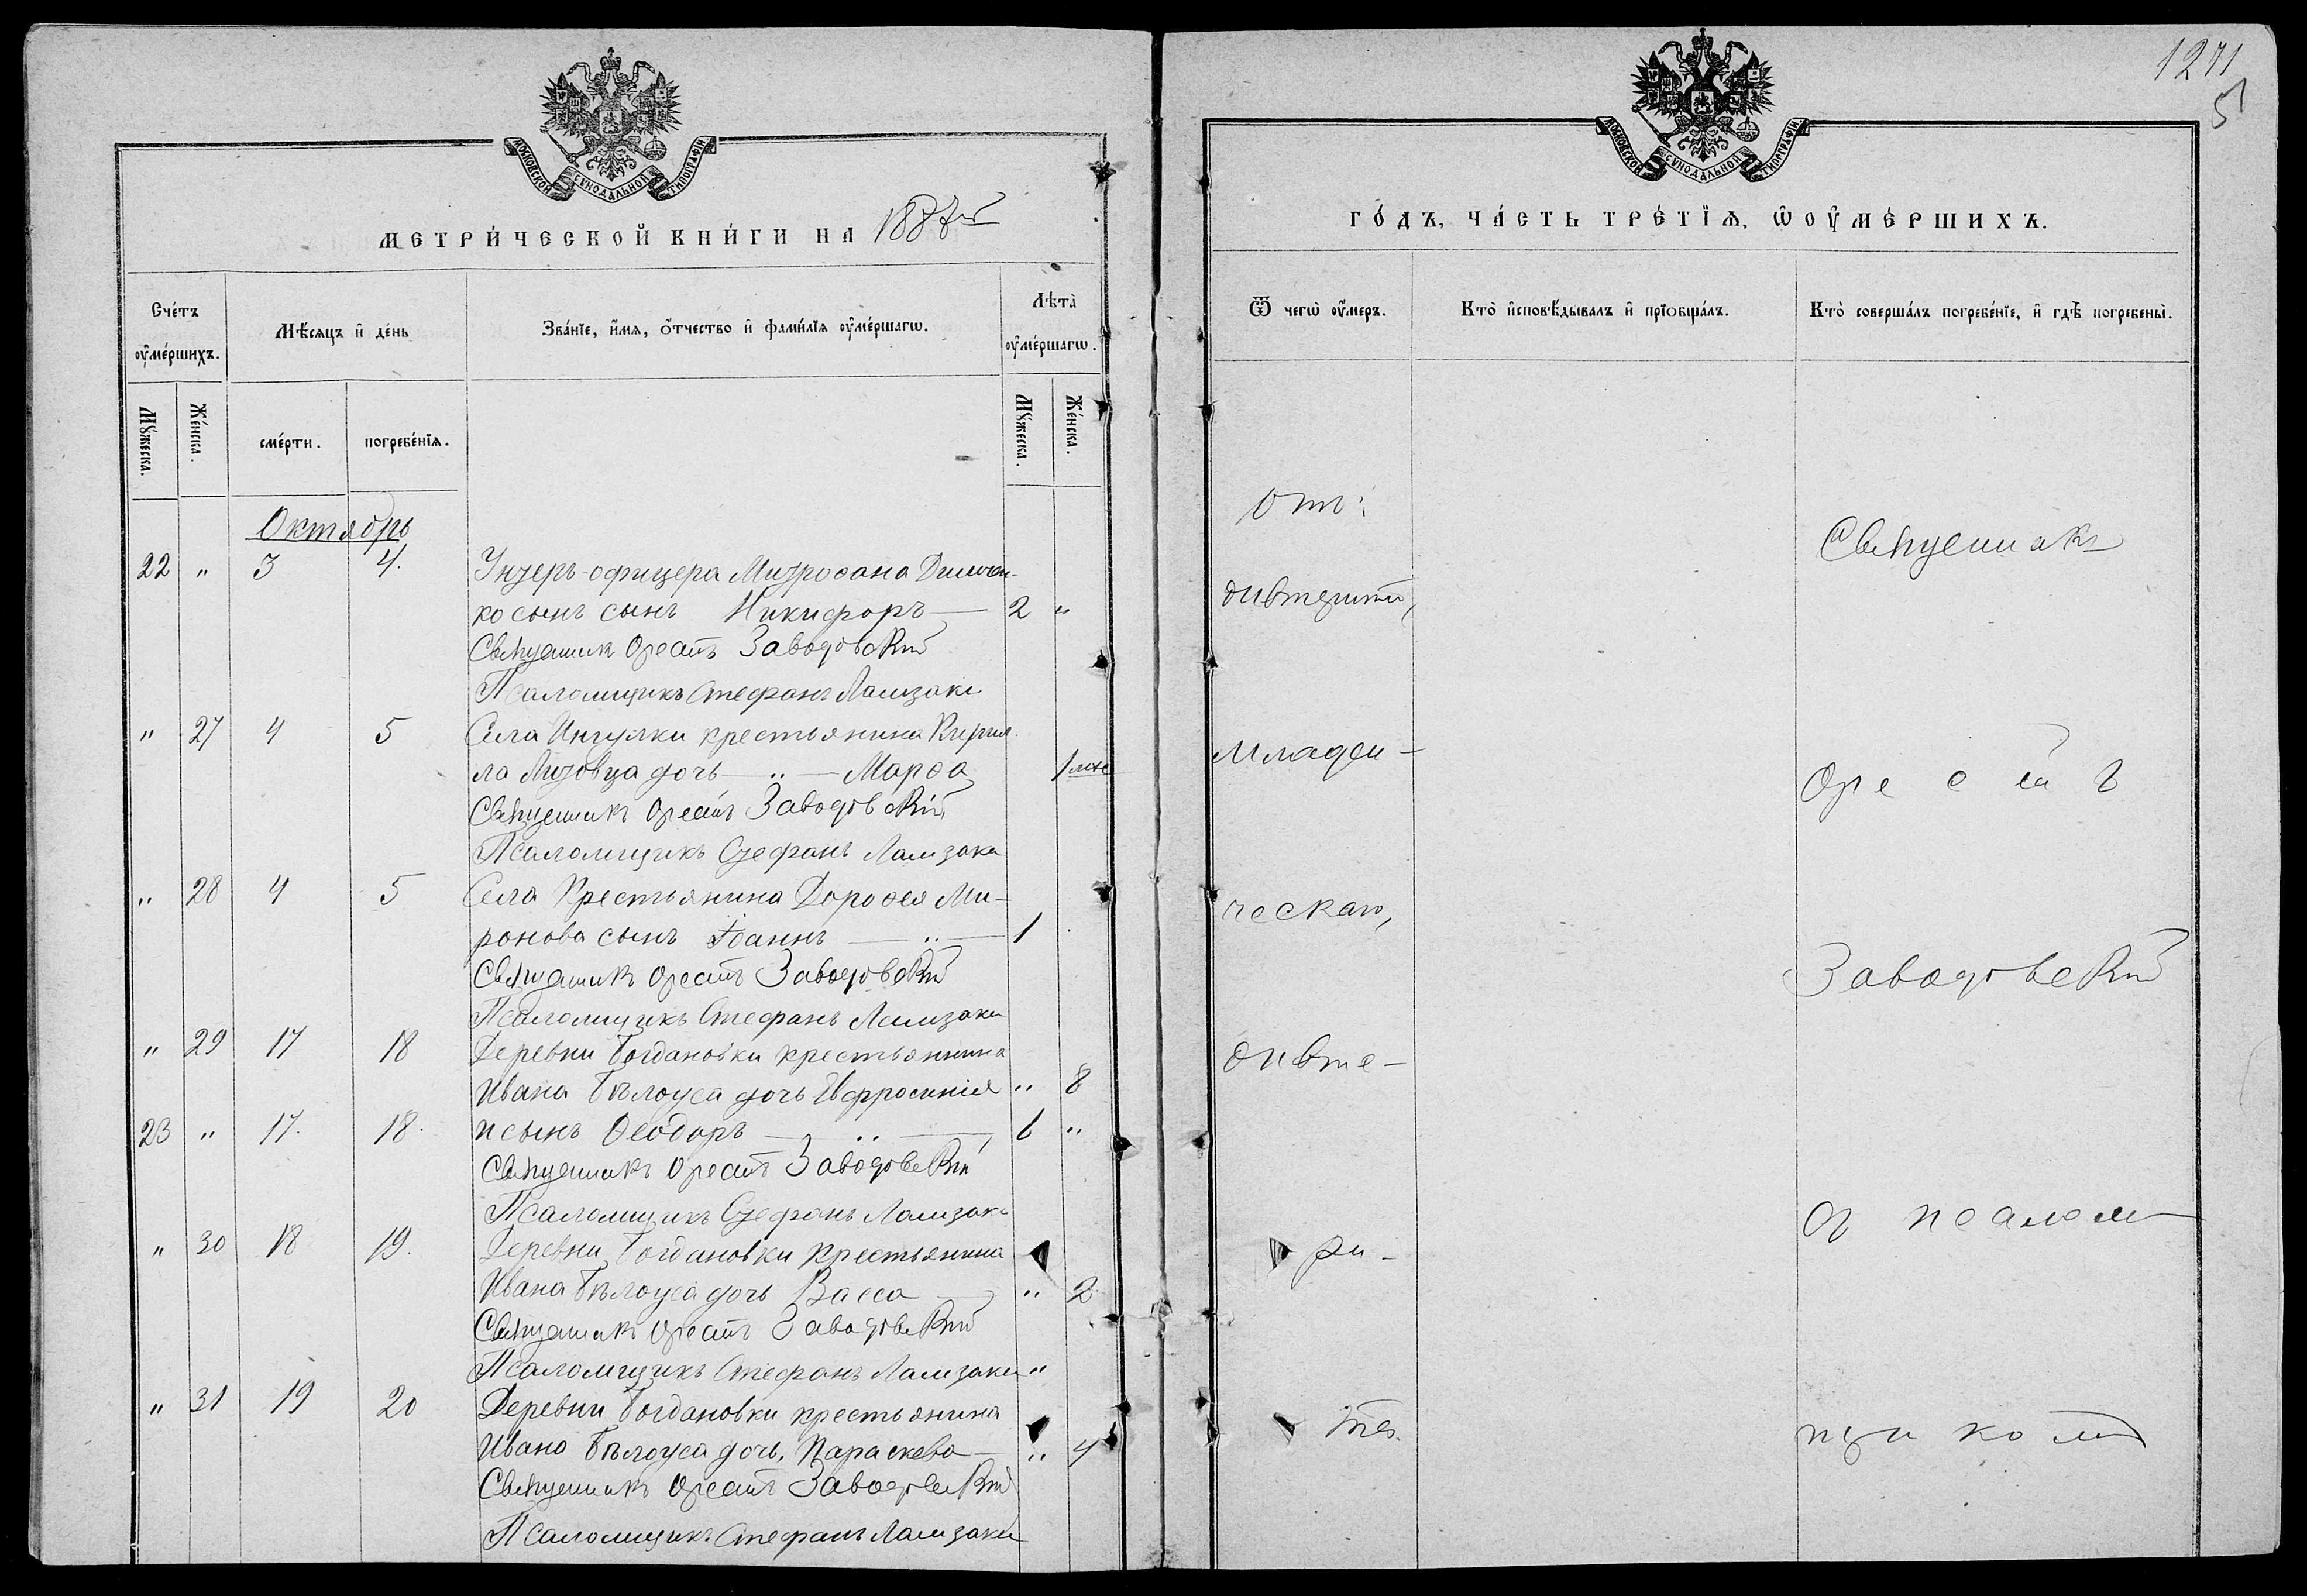 МОСКОВСКОЙ СѴНОДАЛЬНОЙ ТИПОГРАФІИ.
МЕТРИ́ЧЕСКОЙ КНИ́ГИ НА 1887й
Сче́тъ ᲂу҆ме́ршихъ.
Мѣ́сяцъ и҆ де́нь
Зва́нїе, и҆́мѧ, ѻ҆́тчество и҆ фами́лїѧ ᲂу҆ме́ршагѡ.
Лѣта̀ ᲂу҆ме́ршагѡ.
Мꙋ́жеска.
Же́нска.
сме́рти.
погребе́нїѧ.
Мꙋ́жеска.
Же́нска.
Октябрь
22 " 3 4. Унтеръ-офицера Митрофана
ко сынъ сынъ Никифоръ — 2 "
Священникъ Орестъ Заводовскій
Псаломщикъ Стефанъ
" 27 4 5 Села Ингулки крестьянина Кирил-
ла дочь — " — Марѳа 1 мѣс
Священникъ Орестъ Заводовскій
Псаломщикъ Стефанъ
" 28 4 5 Села Крестьянина Дороѳея Ми-
ронова сынъ Іоаннъ — " — 1
Священникъ Орестъ Заводовскій
Псаломщикъ Стефанъ
" 29 17 18 Деревни Богдановки крестьянина
Ивана Бѣлоуса дочь Евфросинія " 8
23 " 17. 18. и сынъ Ѳеодоръ — " — 6 "
Священникъ Орестъ Заводовскій
Псаломщикъ Стефанъ
" 30 18 19. Деревни Богдановки крестьянина
Ивана Бѣлоуса дочь Васса — " 2
Священникъ Орестъ Заводовскій
Псаломщикъ Стефанъ "
" 31 19 20 Деревни Богдановки крестьянина
Ивана Бѣлоуса дочь Параскева — " 4
Священникъ Орестъ Заводовскій
Псаломщикъ Стефанъ
1271
5
МОСКОВСКОЙ СѴНОДАЛЬНОЙ ТИПОГРАФІИ.
ГО́ДЪ, ЧА́СТЬ ТРЕ́ТЇѦ, Ѡ ОУ҆МЕ́РШИХЪ.
Ѿ чегѡ̀ ᲂу҆́меръ.
Кто̀ и҆сповѣ́дывалъ и҆ прїѡбща́лъ.
Кто̀ соверша́лъ погребе́нїе, и҆ гдѣ̀ погребены̀.
отъ:
Священникъ
младен-
Орестъ
ческаго,
Заводовскій
дифте-
съ псалом
ри-
та.
щикомъ